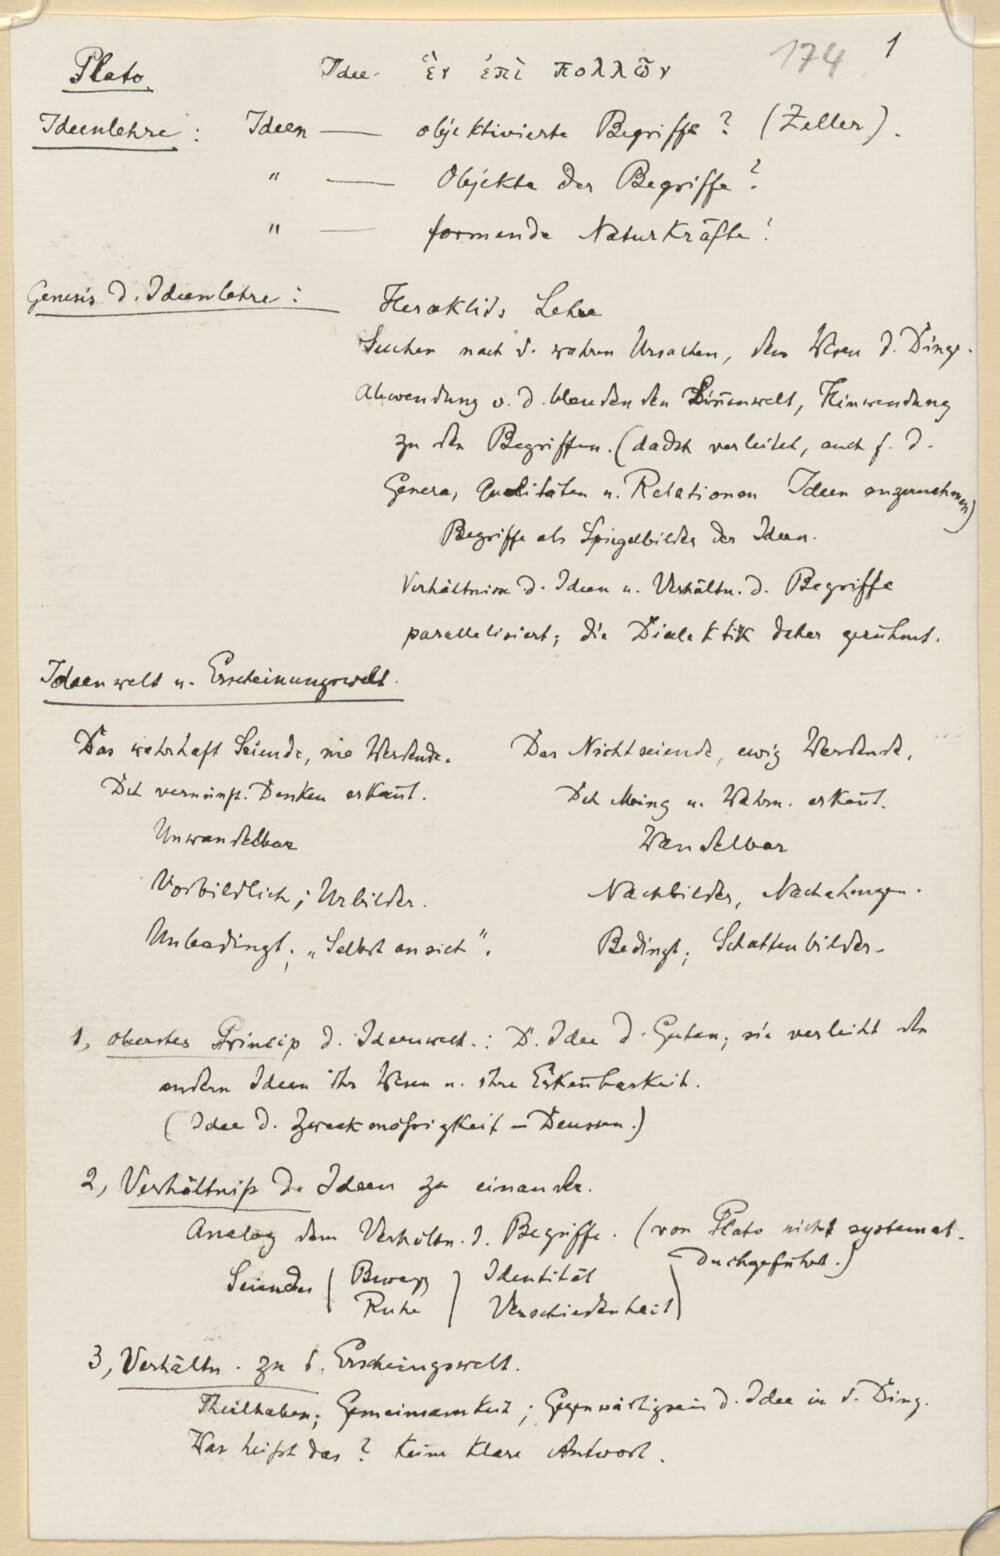 174 1
Plato. Idee - ἓν ἐπὶ πολλῶν
Ideenlehre: Ideen — objektivierte Begriffe? (Zeller).
" — Objekte der Begriffe?
" — formende Naturkräfte?
Genesis d. Ideenlehre: Heraklits Lehre
Suchen nach d. wahren Ursachen, dem Wesen d. Dinge.
Abwendung v. d. blendenden Sinnenwelt, Hinwendung
zu den Begriffen. (dadch verleitet, auch f. d.
Genera, Qualitäten u. Relationen Ideen anzunehmen)
Begriffe als Spiegelbilder der Ideen.
Verhältnisse d. Ideen u. Verhältn. d. Begriffe
parallelisiert; die Dialektik daher gerühmt.
Ideenwelt u. Erscheinungswelt.
Das wahrhaft Seiende, nie Werdende. Das Nichtseiende, ewig Werdende.
Dch vernünft. Denken erkannt. Dch Meing u. Wahrn. erkannt.
Unwandelbar Wandelbar
Vorbildlich; Urbilder. Nachbilder, Nachahmgen.
Unbedingt; „Selbst an sich“. Bedingt; Schattenbilder.
1, oberstes Princip d. Ideenwelt.: D. Idee d. Guten; sie verleiht den
andern Ideen ihr Wesen u. ihre Erkennbarkeit.
(Idee d. Zweckmäßigkeit - Deussen.)
2, Verhältniß d. Ideen zu einander.
Analog dem Verhältn. d. Begriffe. (von Plato nicht systemat.
durchgeführt.)
Seiendes ( Bewegg ) Identität
Ruhe Verschiedenheit)
3, Verhältn. zu d. Erscheingswelt.
Theilhaben; Gemeinsamkeit; Gegenwärtigsein d. Idee in d. Ding.
Was heißt das? Keine klare Antwort.